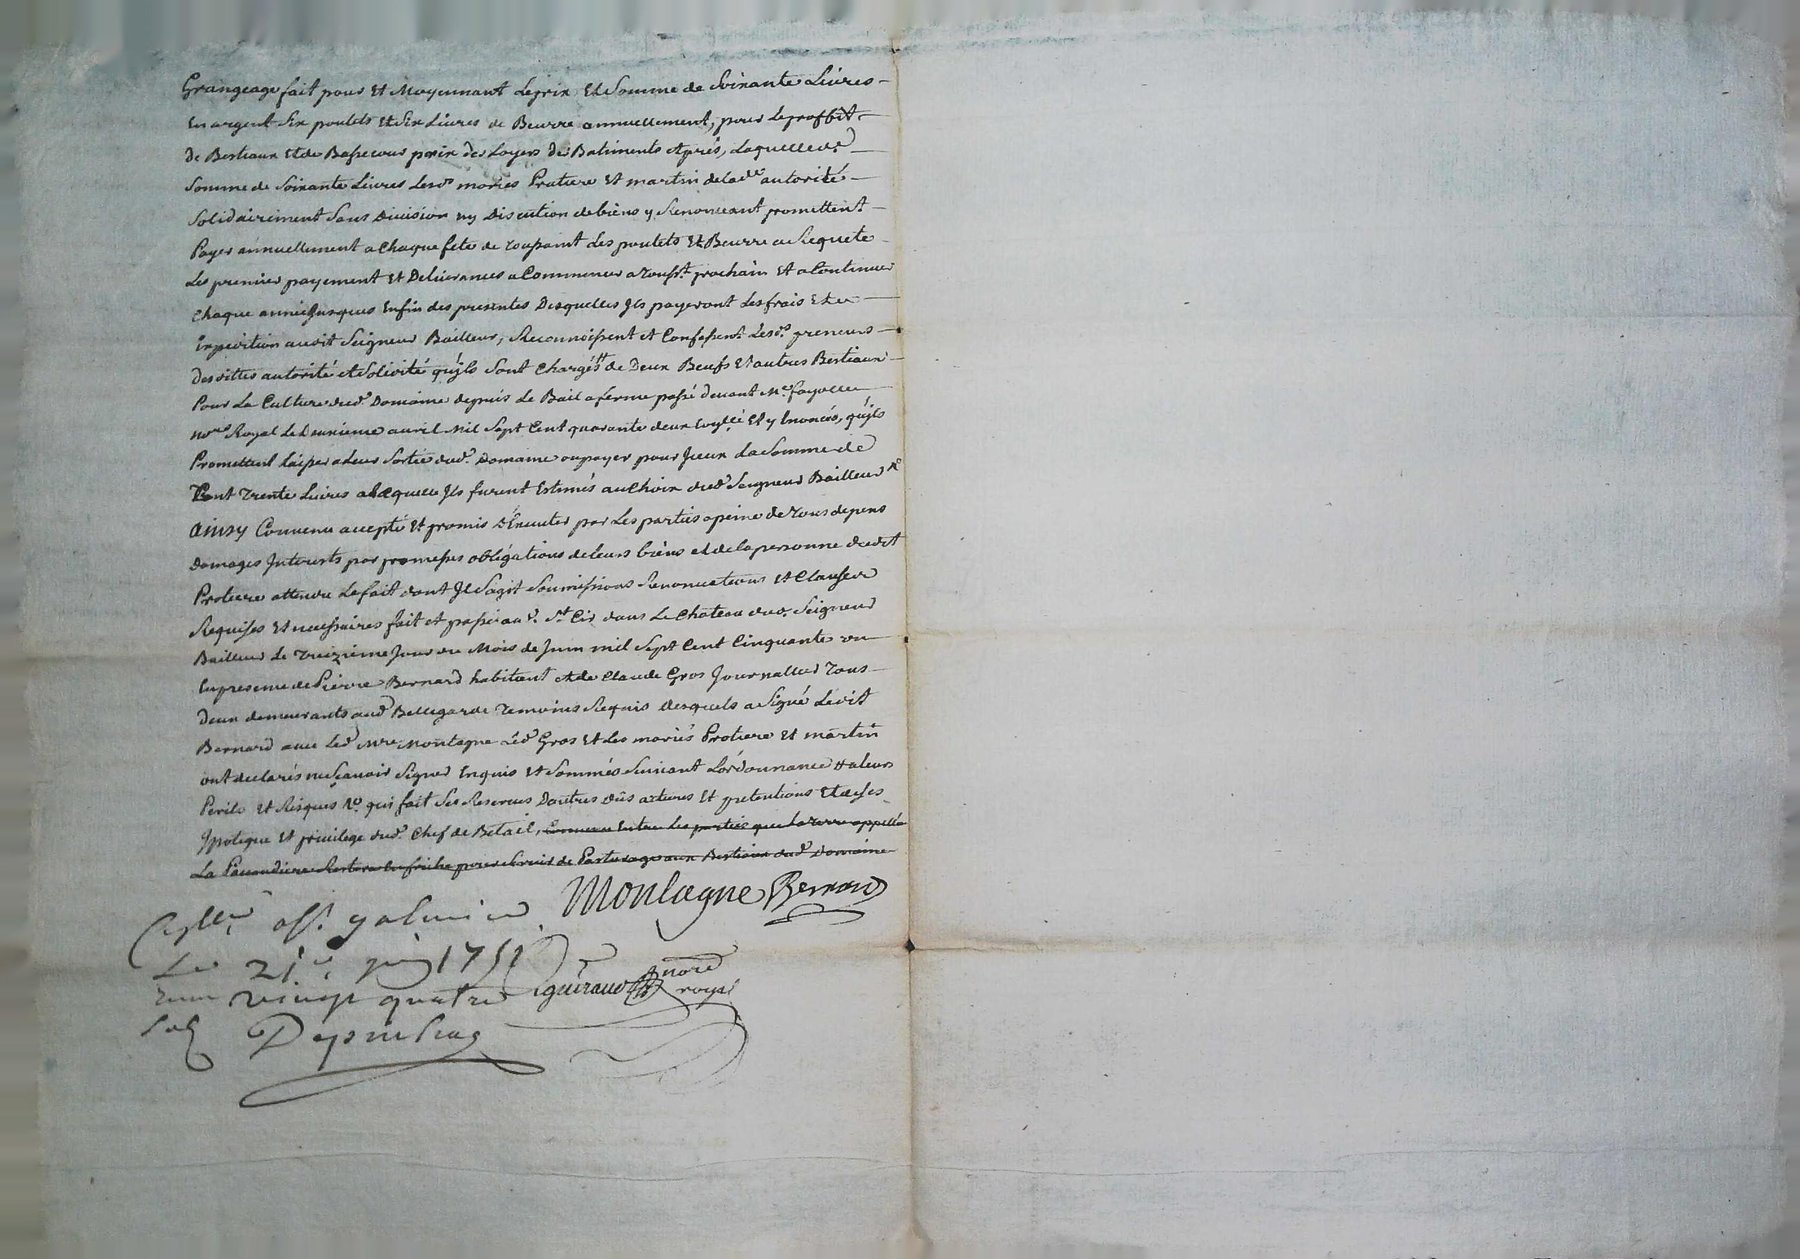 Grangeage fait pour Et Moyennant Le prix Et Somme de Soixante Livres
En argent Six poulets Et Six Livres de Beurre annuellement, pour Le proffit
De Bestiaux Et de Bassecour prix des Loyers des Batiments Aprés, Laquelle d.e
Somme de Soixante Livres Lesd.s mariés Protiere Et martin de lad.te autorité
Solidairement Sans Division ny Discution de biens y Renonceant promettent
Payer annuellement a Chaque fete de toussaint Les poulets Et Beurre a Requete
Les premiers payement Et Delivrances a Commencer a touss.t prochain Et a Continuer
Chaque année Jusques Enfin des presentes Desquelles Ils payeront Les frais Et
Expedition audit Seigneur Bailleur, Reconnoissent et Confessent Lesd.s preneurs
Desdittes autorité et Solidité qu'ils Sont Chargés de Deux Beufs Et autres Bestiaux
Pour La Culture dud.t Domaine depuis Le Bail a ferme passé devant M.e fayolle
no.re Royal Le Deuxieme avril Mil Sept Cent quarante deux Et y Enoncés, qu'ils
Promettent Laisser a Leur Sortie dud.t Domaine ou payer pour Jceux La Somme de
Cent Trente Livres a Laquelle Ils furent Estimés au Choix dud.t Seigneur Bailleur
Ainsy Convenu accepté Et promis D'Exécuter par Les parties a peine de Tous depens
Domages Interests par promesses obligations de leurs biens et de la personne dudit
Protiere attendu Le fait dont Il S'agit Soumissions Renonciations Et Clauses
Requises Et necessaires fait et passé au St Cir dans Le Chateau dud. Seigneur
Bailleur Le Treizieme Jour du Mois de Juin mil Sept Cent Cinquante un
En presence de Pierre Bernard habitant et de Claude Gros Journallier Tous
Deux demeurants aud.t Bellegarde Temoins Requis Desquels a Signé Ledit
Bernard avec Led.t M.re Montagne Led.t Gros Et Les mariés Protiere Et martin
ont declarés ne Sçavoir Signer Enquis Et Sommés Suivant L'ordonnance
Perils Et Risques qui fait Ses Reserves D'autres Dus actures Et pretentions Et de Ses
Ypoteque Et privilege dud.t Chef de Betail, Convenu Entre Les parties que La Terre appellée
La Restera En friche pour Servir de Pasturage aux Bestiaux dud.t Domaine
Montagne Bernard
Le 21e juin 1751
vingt quatre
gueraud nore
royal